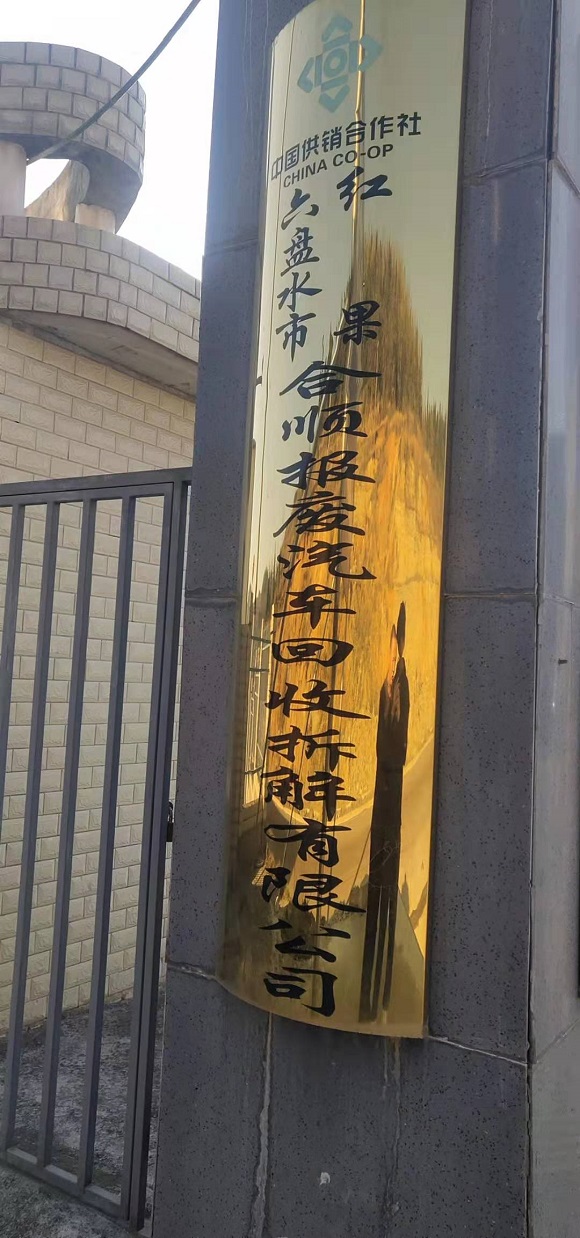 中国供销合作社
CHINA CO-OP
六盘水市
红果
合顺报废汽车回收拆解有限公司